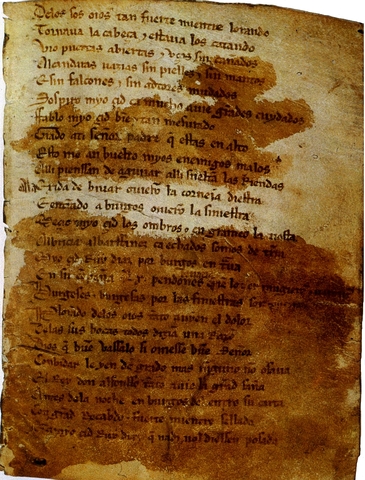 Delos sos oios tan fuerte mientre lorando
Tornaua la cabeça ⁊ estaua los catando
Vio puertas abiertas ⁊ vços sin cañados
Alcandaras uazias sin pielles ⁊ sin mantos
E sin falcones ⁊ sin adtores mudados
Sospiro myo çid ca mucho auie grãdes cuydados
Fablo myo çid biẽ ⁊ tan mesurado
Grado ati señor padre q̃ estas en alto
Esto me an buelto myos enemigos malos
Alli pienssan de aguiiar alli sueltã las Riendas
Ala exida de biuar ouierõ la corneia diestra
E entrãdo a burgos ouierõ la siniestra
Meçio myo çid los ombros ⁊ en grameo la tiesta
Albricia albarffanez ca echados somos de tierra
Myo çid Ruy diaz por burgos en traua
En su compaña .Lx. pendones
Burgeses ⁊ burgesas por las finiestras son
Plorando delos oios tãto auyen el dolor
Delas sus bocas todos dizian una Razon
Dios q̃ buẽ vassalo si ouiesse buẽ Señor
Conbidar le yen de grado mas ninguno no osaua
El Rey don alfonsso tãto auie la grãd saña
Antes dela noche en burgos del entro su carta
Cõ grãd Recabdo ⁊ fuerte mientre sellada
Que a myo çid Ruy diaz q̃ nadi nol diessen posada